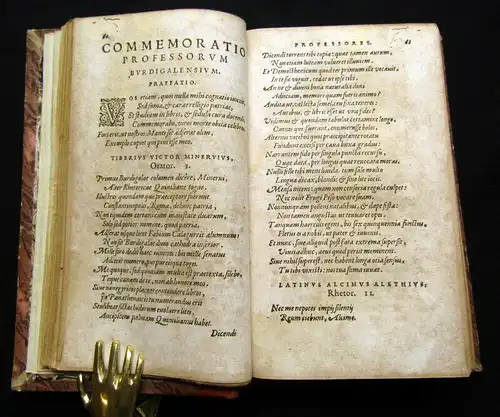 60
COMMEMORATIO
PROFESSORVM
BVRDIGALENSIVM.
PRAEFATIO.
VOS etiam, quos nulla mihi cognatio iunxit,
Sed fama, & caræ religio patriæ,
Et studium in libris, & sedula cura docendi,
Commemorabo, viros morte obita celebres.
Fors erit, vt nostros Manes sic adserat olim,
Exemplo cupiet qui pius esse meo.
TIBERIVS VICTOR MINERVIVS,
Orator. I.
Primus Burdigalæ columen dicêre, Minerui,
Alter Rhetoricæ Quintiliane togæ.
Illustres quondam quo præceptore fuerunt
Constantinopolis, Roma, dehinc patria,
Non equidem certans cum maiestate duarum,
Sed solo potior nomine, quod patria.
Adserat vsque licet Fabium Calagurris alumnum:
Non sit Burdigalæ dum cathedra inferior.
Mille foro dedit hæc iuuenes bis mille senatus
Adiecit numero, purpureisque togis.
Me quoque, sed quoniam multa est prætexta, silebo,
Teque canam de te, non ab honore meo.
Siue panegyricis placeat contendere libros,
In Panathenaicis tu numerandus eris
Seu libeat fictas ludorum euoluere lites,
Ancipitem palmam Quintilianus habet.
Dicendi
PROFESSORES. 61
Dicendi torrens tibi copia: quæ tamen aurum,
Non etiam luteam volueret illuuiem.
Et Demosthenicum quod ter primum ille vocauit,
In te sic viguit, cedat vt ipse tibi.
Anne & diuini bona naturalia dona
Adiiciam, memori quam fueris animo?
Audita vt, vel lecta semel, ceu fixa teneres:
Auribus, & libris esset vt vna fides?
Vidimus & quondam tabulæ certamine longo,
Omnes qui fuerant, enumerasse bolos.
Alternis vicibus quos præcipitante rotatu
Fundunt excisi per caua buxa gradus:
Narrantem fido per singula puncta recursu,
Quæ data, per longas quæ reuocata moras.
Nullo felle tibi mens liuida, tum sale multo
Lingua dicax, blandis, & sine lite iocis.
Mensa nitens: quam non censoria regula culpet:
Nec nolit Frugi Piso vocare suam.
Nonnunquam pollens natalibus, & dape festa:
Non tamen angustas vt tenuaret opes.
Tanquam hæredis egens, bis sex quinquennia functus,
Fletus es a nobis, vt pater & iuuenis.
Et nunc, siue aliquid post fata extrema superfit,
Viuis adhuc, aeui quod periit meminens.
Siue nihil superest, nec habent longa otia sensus,
Tu tibi vixisti: nos tua fama iuuat.
LATINVS ALCIMVS ALETHIVS,
Rhetor. II.
Nec me nepotes impij silentij
Reum ciebunt, Alcime.